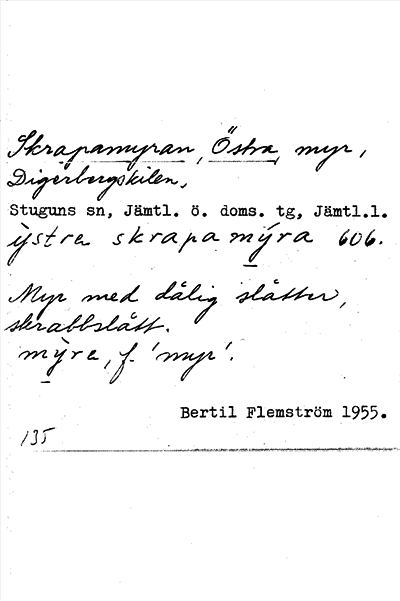 Skrapamyran, Östra, myr,
Digerbergskilen,
Stuguns sn, Jämtl. ö. doms. tg, Jämtl.l.
ỳstra skrapamýra 606.
Myr med dålig slåtter,
skrabbslått.
mỳra, f. 'myr'.
Bertil Flemström 1955.
135